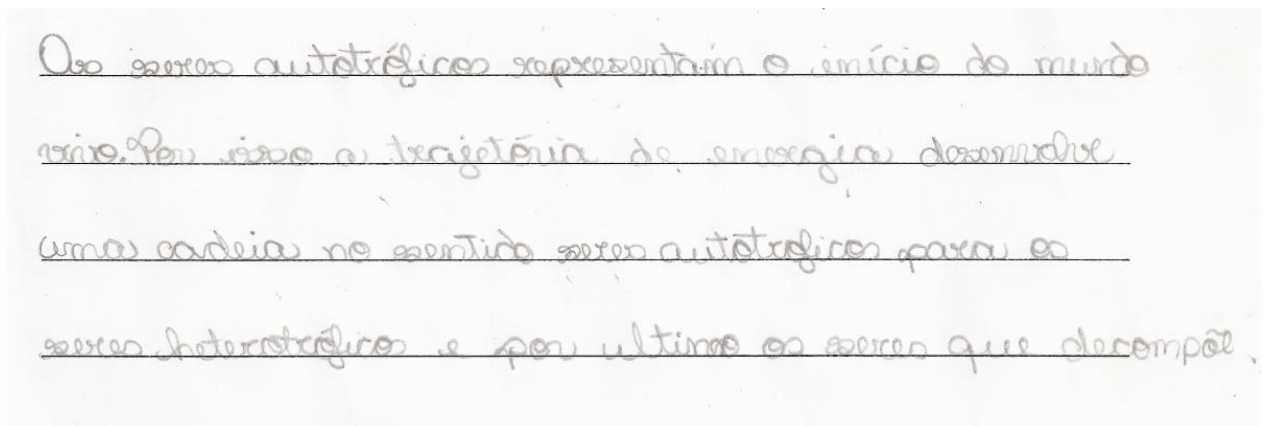 Os seres autotróficos representam o início do mundo
vivo. Por isso a trajetória de energia desenvolve
uma cadeia no sentido seres autotroficos para os
seres heterotróficos e por ultimo os seres que decompõe.